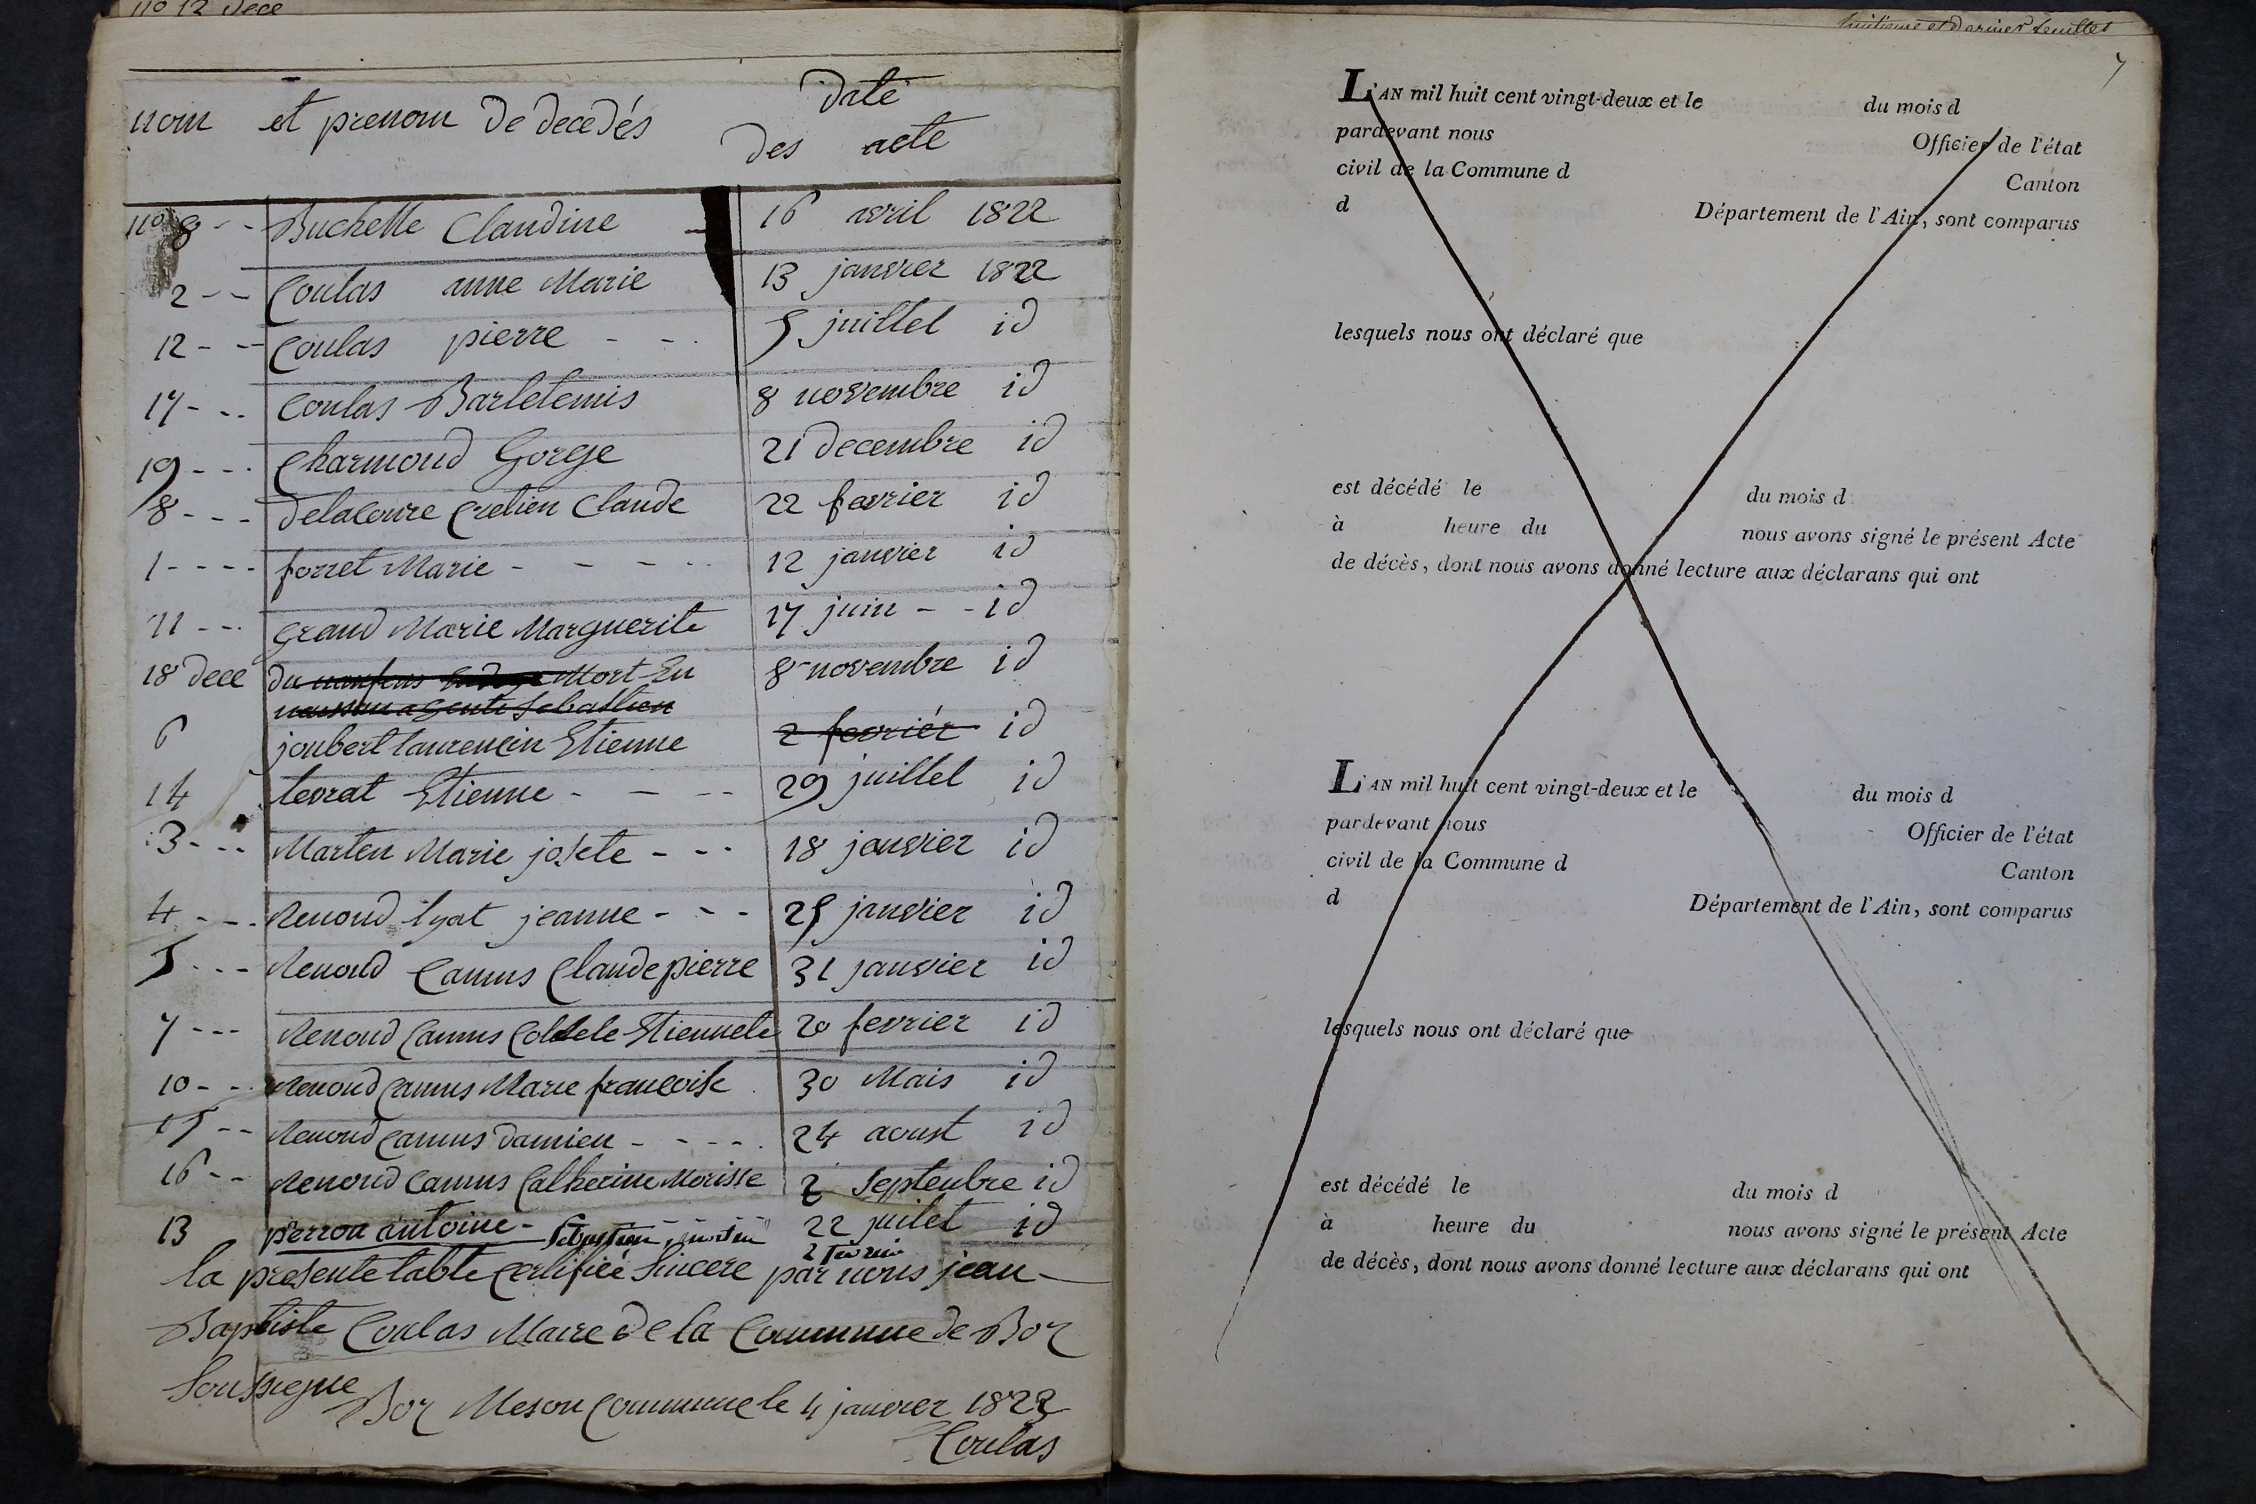 no 12 Dece
nom et prenom De decedés
date
des acte
no 8 -- Buchelle Claudine 16 avril 1822
2 -- Coulas anne Marie 13 janvier 1822
12 -- Coulas pierre -- 5 juillet id
17 -- Coulas Barletemis 8 novembre id
19 --- Charmond Gorge 21 decembre id
8 --- delacoure Cretien Claude 22 fevrier id
1 ---- forret Marie ---- 12 janvier id
11 -- Grand Marie Marguerite 17 juin -- id
18 Dece du Mort En 8 novembre id
Sebastien
6 joubert laurencin Etienne 2 fevrier id
14 levrat Etienne --- 29 juillet id
3 --- Marten Marie josete --- 18 janvier id
4 --- Renoud lyat jeanne --- 25 janvier id
5 --- Renoud Camus Claude pierre 31 janvier id
7 --- Renoud Camus Etiennete 20 fevrier id
10 -- Renoud Camus Marie francoise 30 Mais id
15 -- Renoud Camus Damien ---- 24 aoust id
16 -- Renoud Camus Catherine Morisse 2 Septenbre id
13 perron antoine - 22 juilet id
2 fevrier
la presente table Certifieé Sincere par nous jean
Baptiste Coulas Maire de la Commune de Boz
Soussigne
Boz Meson Commune le 4 janvier 1822
Coulas
huitieme et Dernier feuillet
7
L'AN mil huit cent vingt-deux et le du mois d
pardevant nous Officier de l'état
civil de la Commune d Canton
d Département de l'Ain, sont comparus
lesquels nous ont déclaré que
est décédé le du mois d
à heure du nous avons signé le présent Acte
de décès, dont nous avons donné lecture aux déclarans qui ont
L'AN mil huit cent vingt-deux et le du mois d
pardevant nous Officier de l'état
civil de la Commune d Canton
d Département de l'Ain, sont comparus
lesquels nous ont déclaré que
est décédé le du mois d
à heure du nous avons signé le présent Acte
de décès, dont nous avons donné lecture aux déclarans qui ont